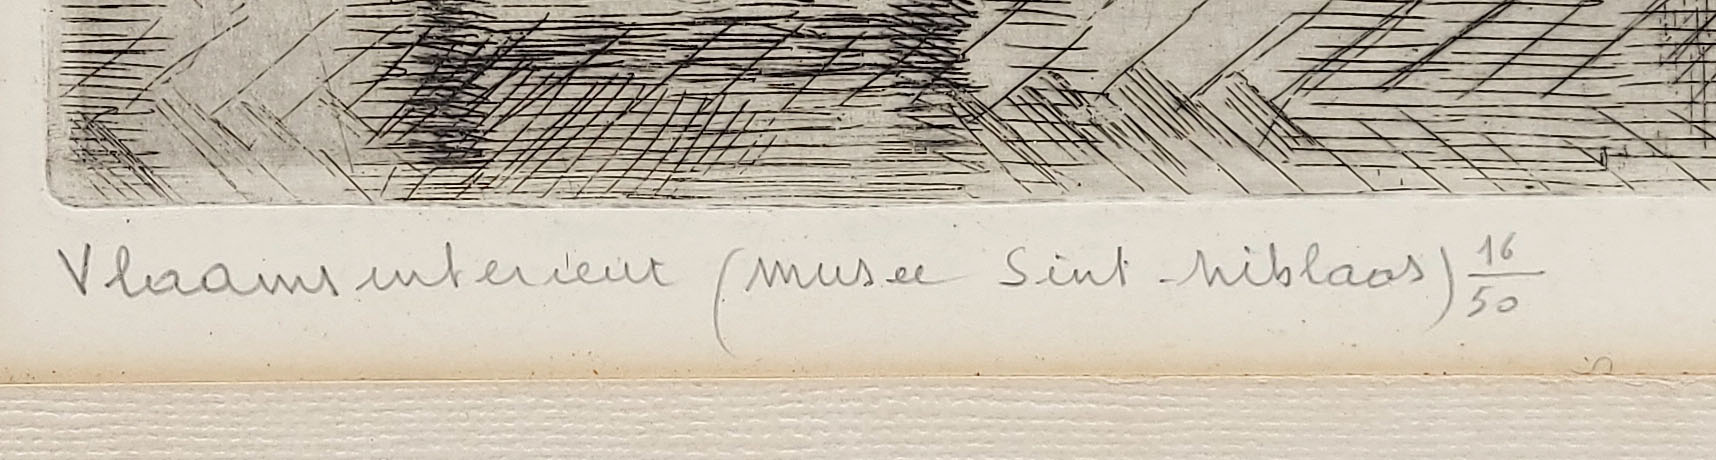 Vlaams interieur (musee Sint-Niklaas) 16/50